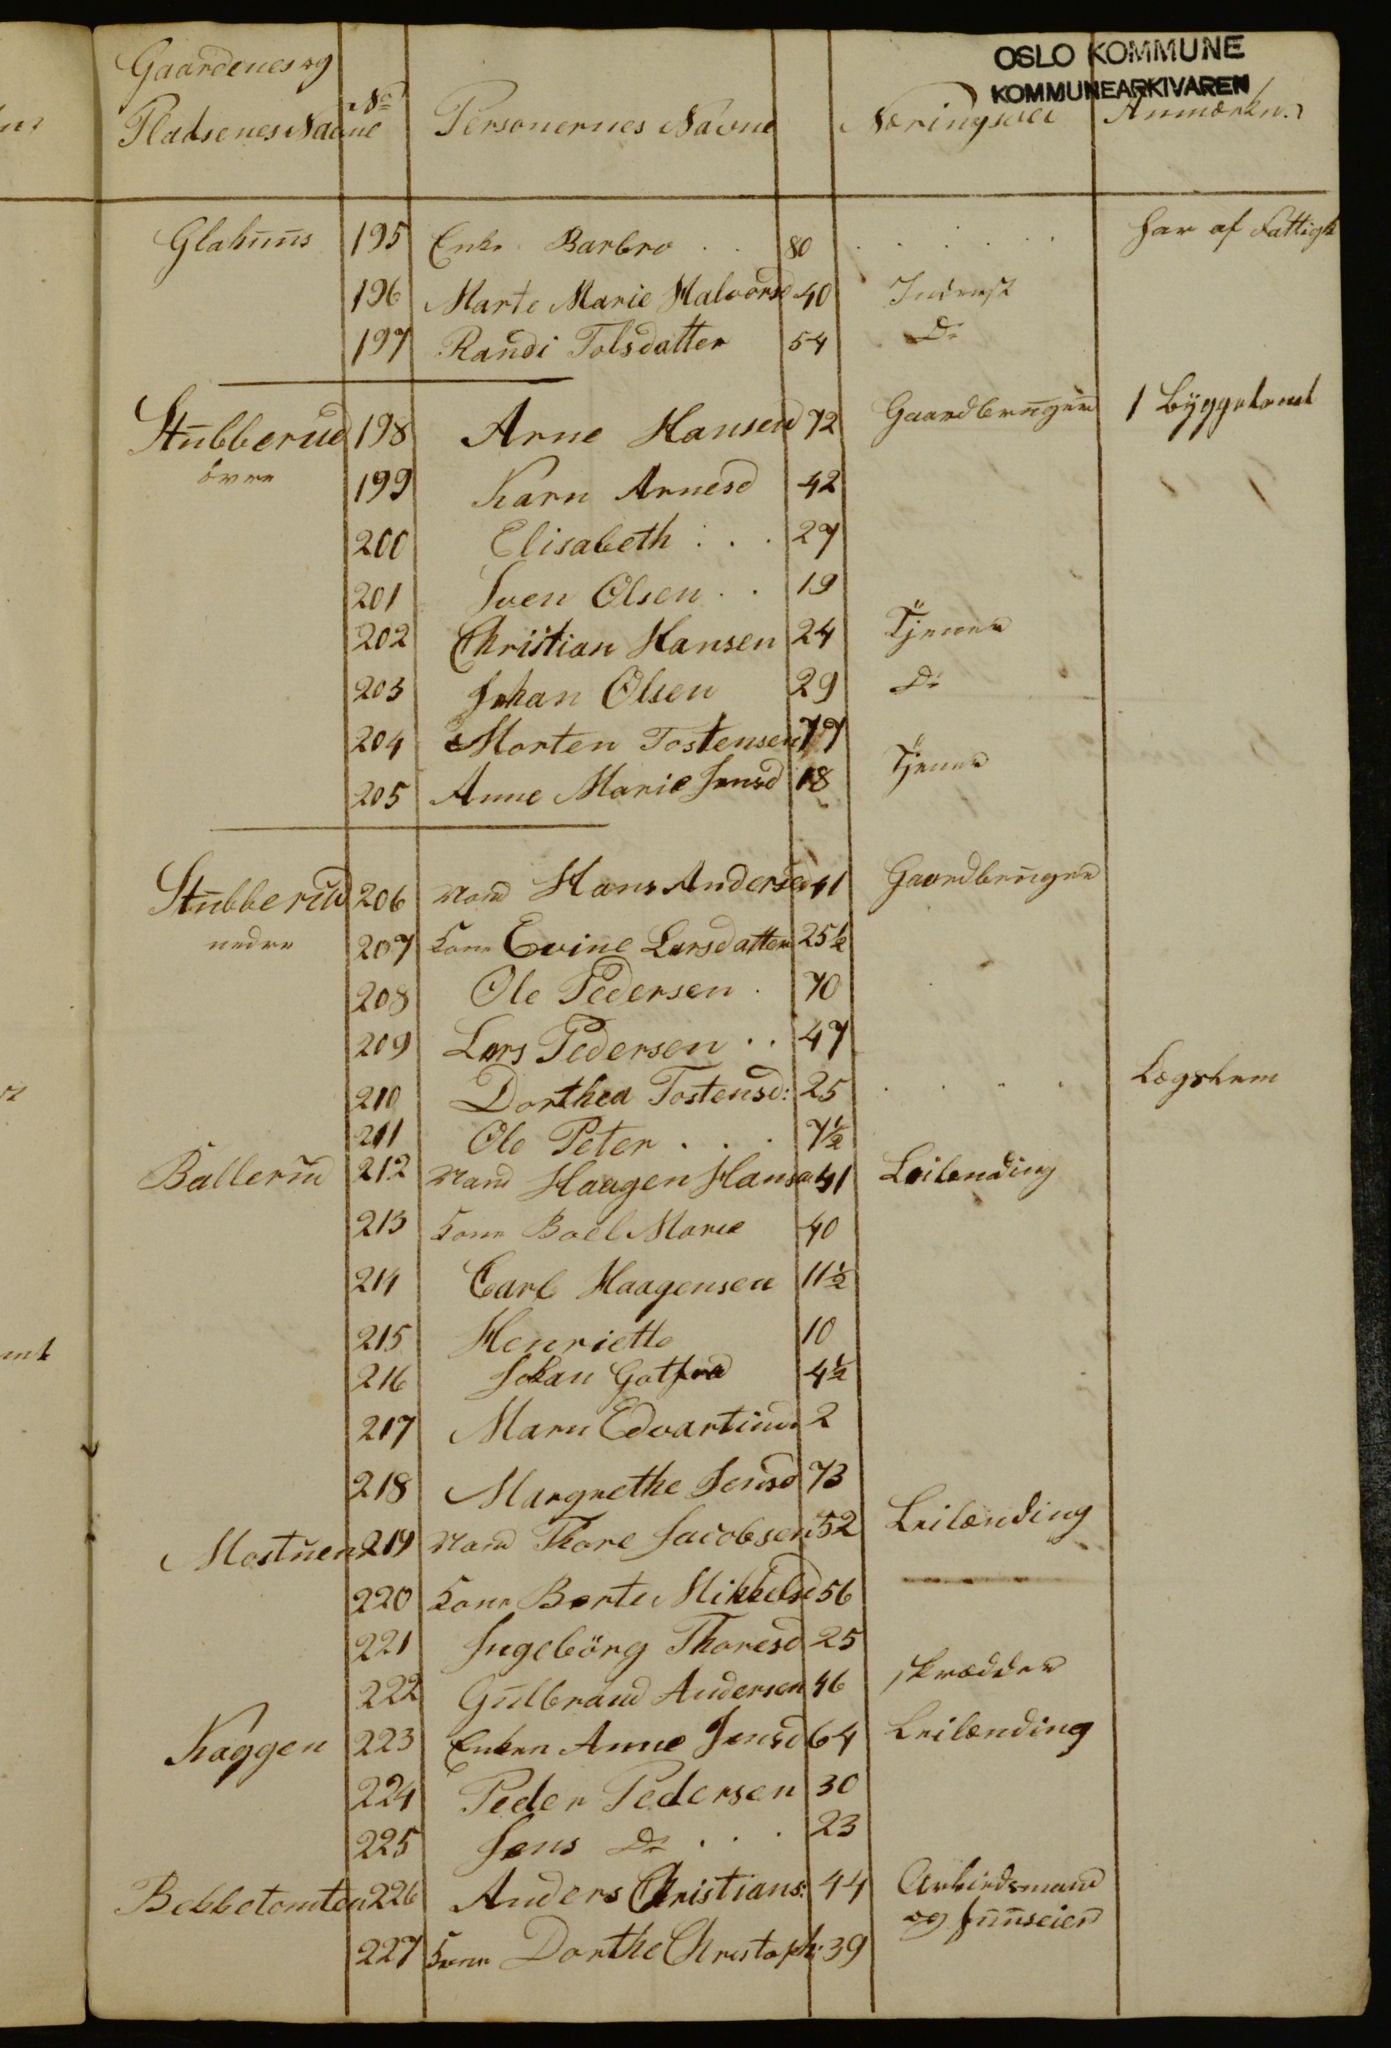 OSLO KOMMUNE
KOMMUNEARKIVAREN
Gaardenes og
Pladsenes Navne No Personernes Navne Næringsvei Anmærkn.
Glahuus 195 Enke Barbro . . 80 . . . . . . har af Fattigk
196 Marte Marie Halvorsd 40 Inderst
197 Randi Tolsdatter 54 Do
Stubberud 198 Arne Hansen 72 Gaardbruger 1 Byggetomt
övre 199 Karn Arnesd 42
200 Elisabeth . . . 27
201 Sven Olsen . . 19
202 Christian Hansen 24 Tjener
203 Johan Olsen 29 Do
204 Morten Tostensen 77
205 Anne Marie Jensd 18 Tjener
Stubberud 206 Mand Hans Andersen 41 Gaardbruger
nedre 207 Kone Evine Larsdatter 25½
208 Ole Pedersen . 70
209 Lars Pedersen . . 47
210 Dorthea Tostensd: 25 . . . . Lægslem
211 Ole Peter . . . 7½
Ballerud 212 Mand Haagen Hansen 41 Leilending
213 Kone Boel Marie 40
214 Carl Haagensen 11½
215 Henriette 10
216 Johan Gotfred 4½
217 Marn Edvartine 2
218 Margrethe Jensd 73
Mostuen 219 Mand Thore Jacobsen 52 Leilænding
220 Kone Berte Mikkelsd 56
221 Ingebörg Thoresd 25
222 Gulbrand Andersen 46 skrædder
Kaggen 223 Enken Anne Jensd 64 Leilænding
224 Peder Pedersen 30
225 Jens Do . . . 23
Bekketomten 226 Anders Christians: 44 Arbeidsmand
og huuseier
227 Kone Dorthe Christoph: 39